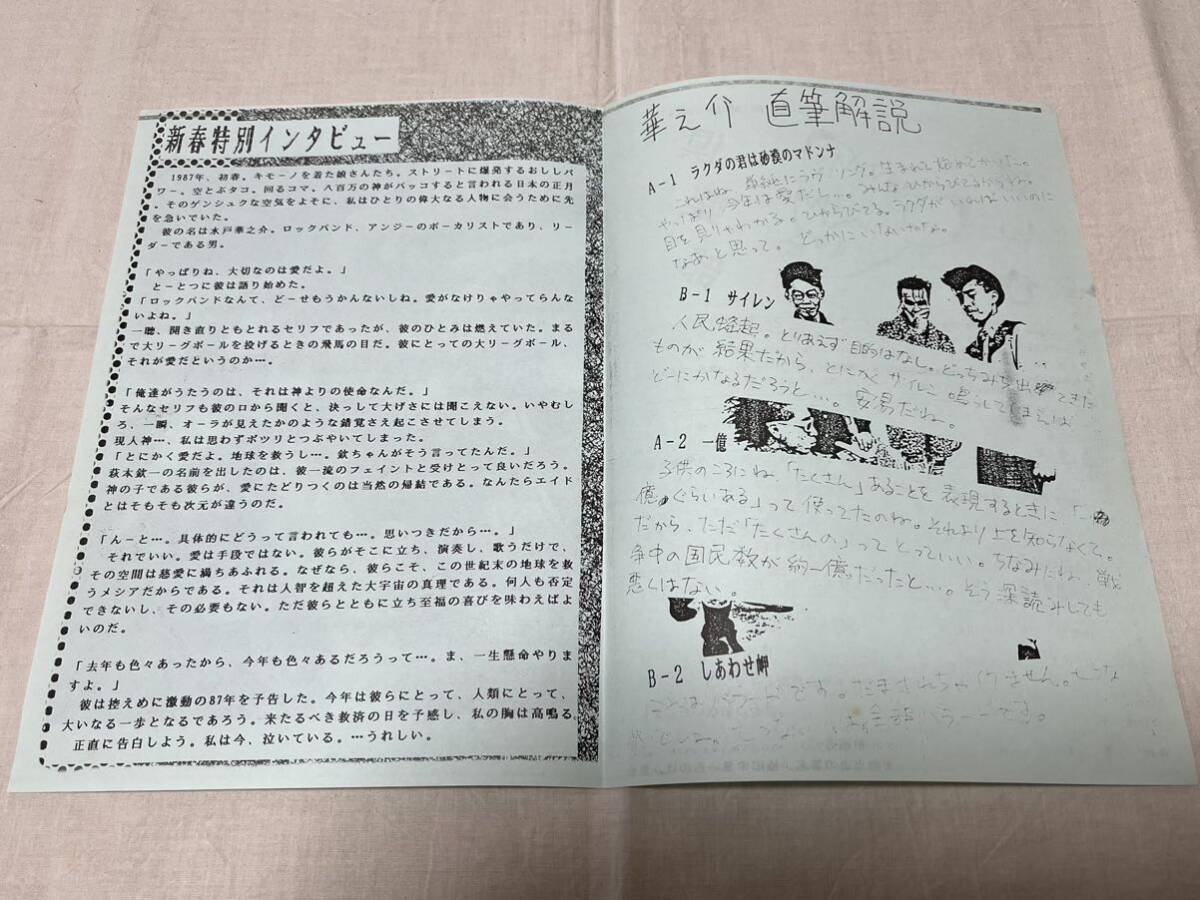 新春特別インタビュー
1987年、初春。キモーノを着た娘さんたち。ストリートに爆発するおししパ
ワー。空とぶタコ。回るコマ。八百万の神がバッコすると言われる日本の正月
。そのゲンシュクな空気をよそに、私はひとりの偉大なる人物に会うために先
を急いでいた。
彼の名は水戸華之介。ロックバンド、アンジーのボーカリストであり、リー
ダーである男。
「やっぱりね、大切なのは愛だよ。」
とーとつに彼は語り始めた。
「ロックバンドなんて、どーせもうかんないしね。愛がなけりゃやってらんな
いよね。」
一聴、開き直りともとれるセリフであったが、彼のひとみは燃えていた。まる
で大リーグボールを投げるときの飛馬の目だ。彼にとっての大リーグボール、
それが愛だというのか…。
「俺達がうたうのは、それは神よりの使命なんだ。」
そんなセリフも彼の口から聞くと、決っして大げさには聞こえない。いやむし
ろ、一瞬、オーラが見えたかのような錯覚さえ起こさせてしまう。
現人神…、私は思わずポツリとつぶやいてしまった。
「とにかく愛だよ。地球を救うし…。欽ちゃんがそう言ってたんだ。」
萩本欽一の名前を出したのは、彼一流のフェイントと受けとって良いだろう。
神の子である彼らが、愛にたどりつくのは当然の帰結である。なんたらエイド
とはそもそも次元が違うのだ。
「んーと…。具体的にどうって言われても…。思いつきだから…。」
それでいい。愛は手段ではない。彼らがそこに立ち、演奏し、歌うだけで、
その空間は慈愛に満ちあふれる。なぜなら、彼らこそ、この世紀末の地球を救
うメシアだからである。それは人智を超えた大宇宙の真理である。何人も否定
できないし、その必要もない。ただ彼らとともに立ち至福の喜びを味わえばよ
いのだ。
「去年も色々あったから、今年も色々あるだろうって…。ま、一生懸命やりま
すよ。」
彼は控えめに激動の87年を予告した。今年は彼らにとって、人類にとって、
大いなる一歩となるであろう。来たるべき救済の日を予感し、私の胸は高鳴る
正直に告白しよう。私は今、泣いている。…うれしい。
華之介 直筆解説
A-1 ラクダの君は砂漠のマドンナ
これはね、単純にラヴソング。生まれて始めてかいた。
やっぱり今年は愛だし…。みんなひからびてるからネ。
目を見りゃわかる。ひからびてる。ラクダがいればいいのに
なあと思って。どっかにいないかな。
B-1 サイレン
人民蜂起。とりあえず目的はなし。どっちみち出てきた
ものが結果だから、とにかくサイレン鳴らしてしまえば
どーにかなるだろうと…。安易だね。
A-2 一億
子供のころにね、「たくさん」あることを表現するときに「一
億ぐらいある」って使ってたのね。それより上を知らなくて。
だから、ただ「たくさんの」ってとっていい。ちなみにね、戦
争中の国民数が約一億だったと…。そう深読みしても
悪くはない。
B-2 しあわせ岬
これはバラードです。だまされちゃいけません。